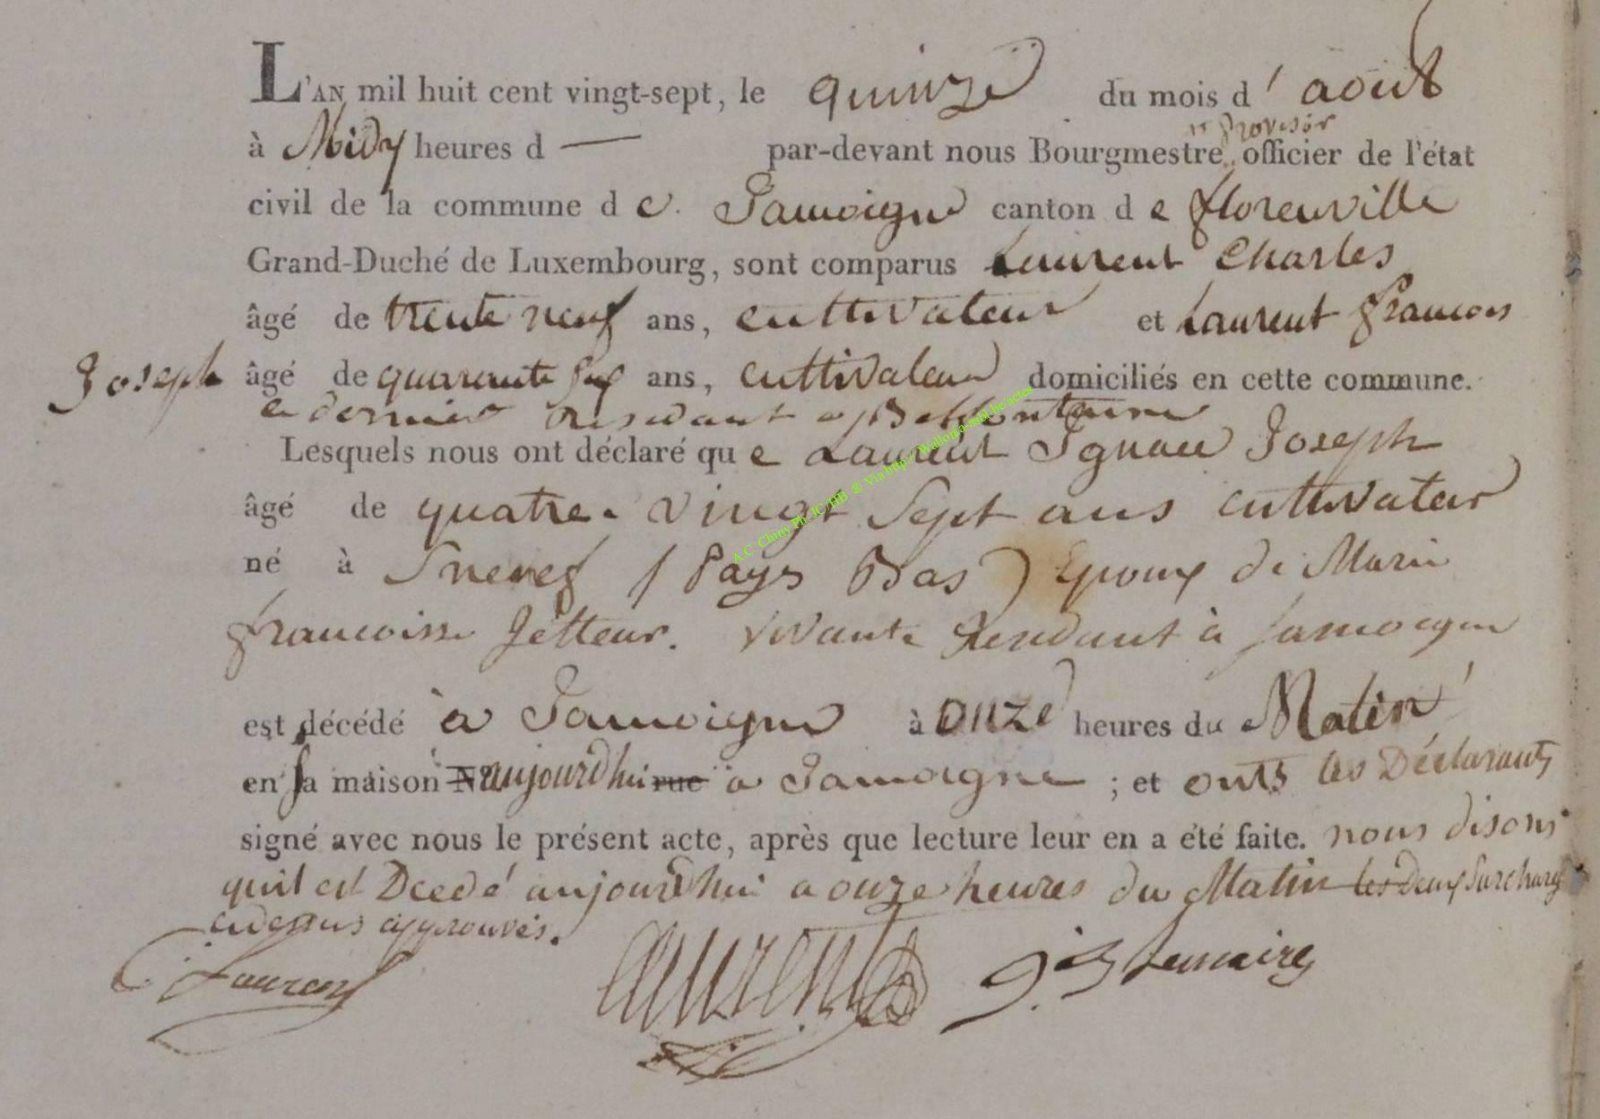 L'AN mil huit cent vingt-sept, le quinze du mois d'aout
à Midy heures d — par-devant nous Bourgmestre provisor officier de l'état
civil de la commune d e Jamoigne canton d e florenville
Grand-Duché de Luxembourg, sont comparus Laurent Charles
âgé de trente neuf ans, cultivateur et Laurent francois
Joseph âgé de quarante six ans, cultivateur domiciliés en cette commune.
ce dernier residant a Bellefontaine
Lesquels nous ont déclaré qu e Laurent Ignace Joseph
âgé de quatre vingt sept ans cultivateur
né à Sneref (Pays Bas) Epoux de Marie
francoise Jetteur. vivante Residant à Jamoigne
est décédé à Jamoigne à onze heures du Matin
en sa maison N° aujourdhui rue a Jamoigne ; et onts les Déclarants
signé avec nous le présent acte, après que lecture leur en a été faite. nous disons
quil est Dcedé aujourdhui a onze heures du Matin les deux surcharges
cidessus approuvés.
C. Laurent Laurent J. B Lemaire